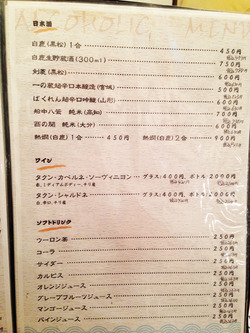 ALCOHOLIC MENU
日本酒
白鹿(黒松)1合 450円
白鹿生貯蔵酒(300ml) 750円
剣菱(黒松) 600円
一の蔵超辛口本醸造(宮城) 500円
ばくれん超辛口吟醸(山形) 600円
船中八策 純米(高知) 700円
匠の関 純米(大分) 600円
熱燗(白鹿)1合 450円 熱燗(白鹿)2合 900円
ワイン
タクン・カベルネ・ソーヴィニヨン グラス:400円、ボトル 2000円
赤、ミディアムボディー、チリ産
タクン・シャルドネ グラス:400円、ボトル 2000円
ソフトドリンク
ウーロン茶 250円
コーラ 250円
サイダー 250円
カルピス 250円
オレンジジュース 250円
グレープフルーツジュース 250円
マンゴージュース 250円
パインジュース 250円